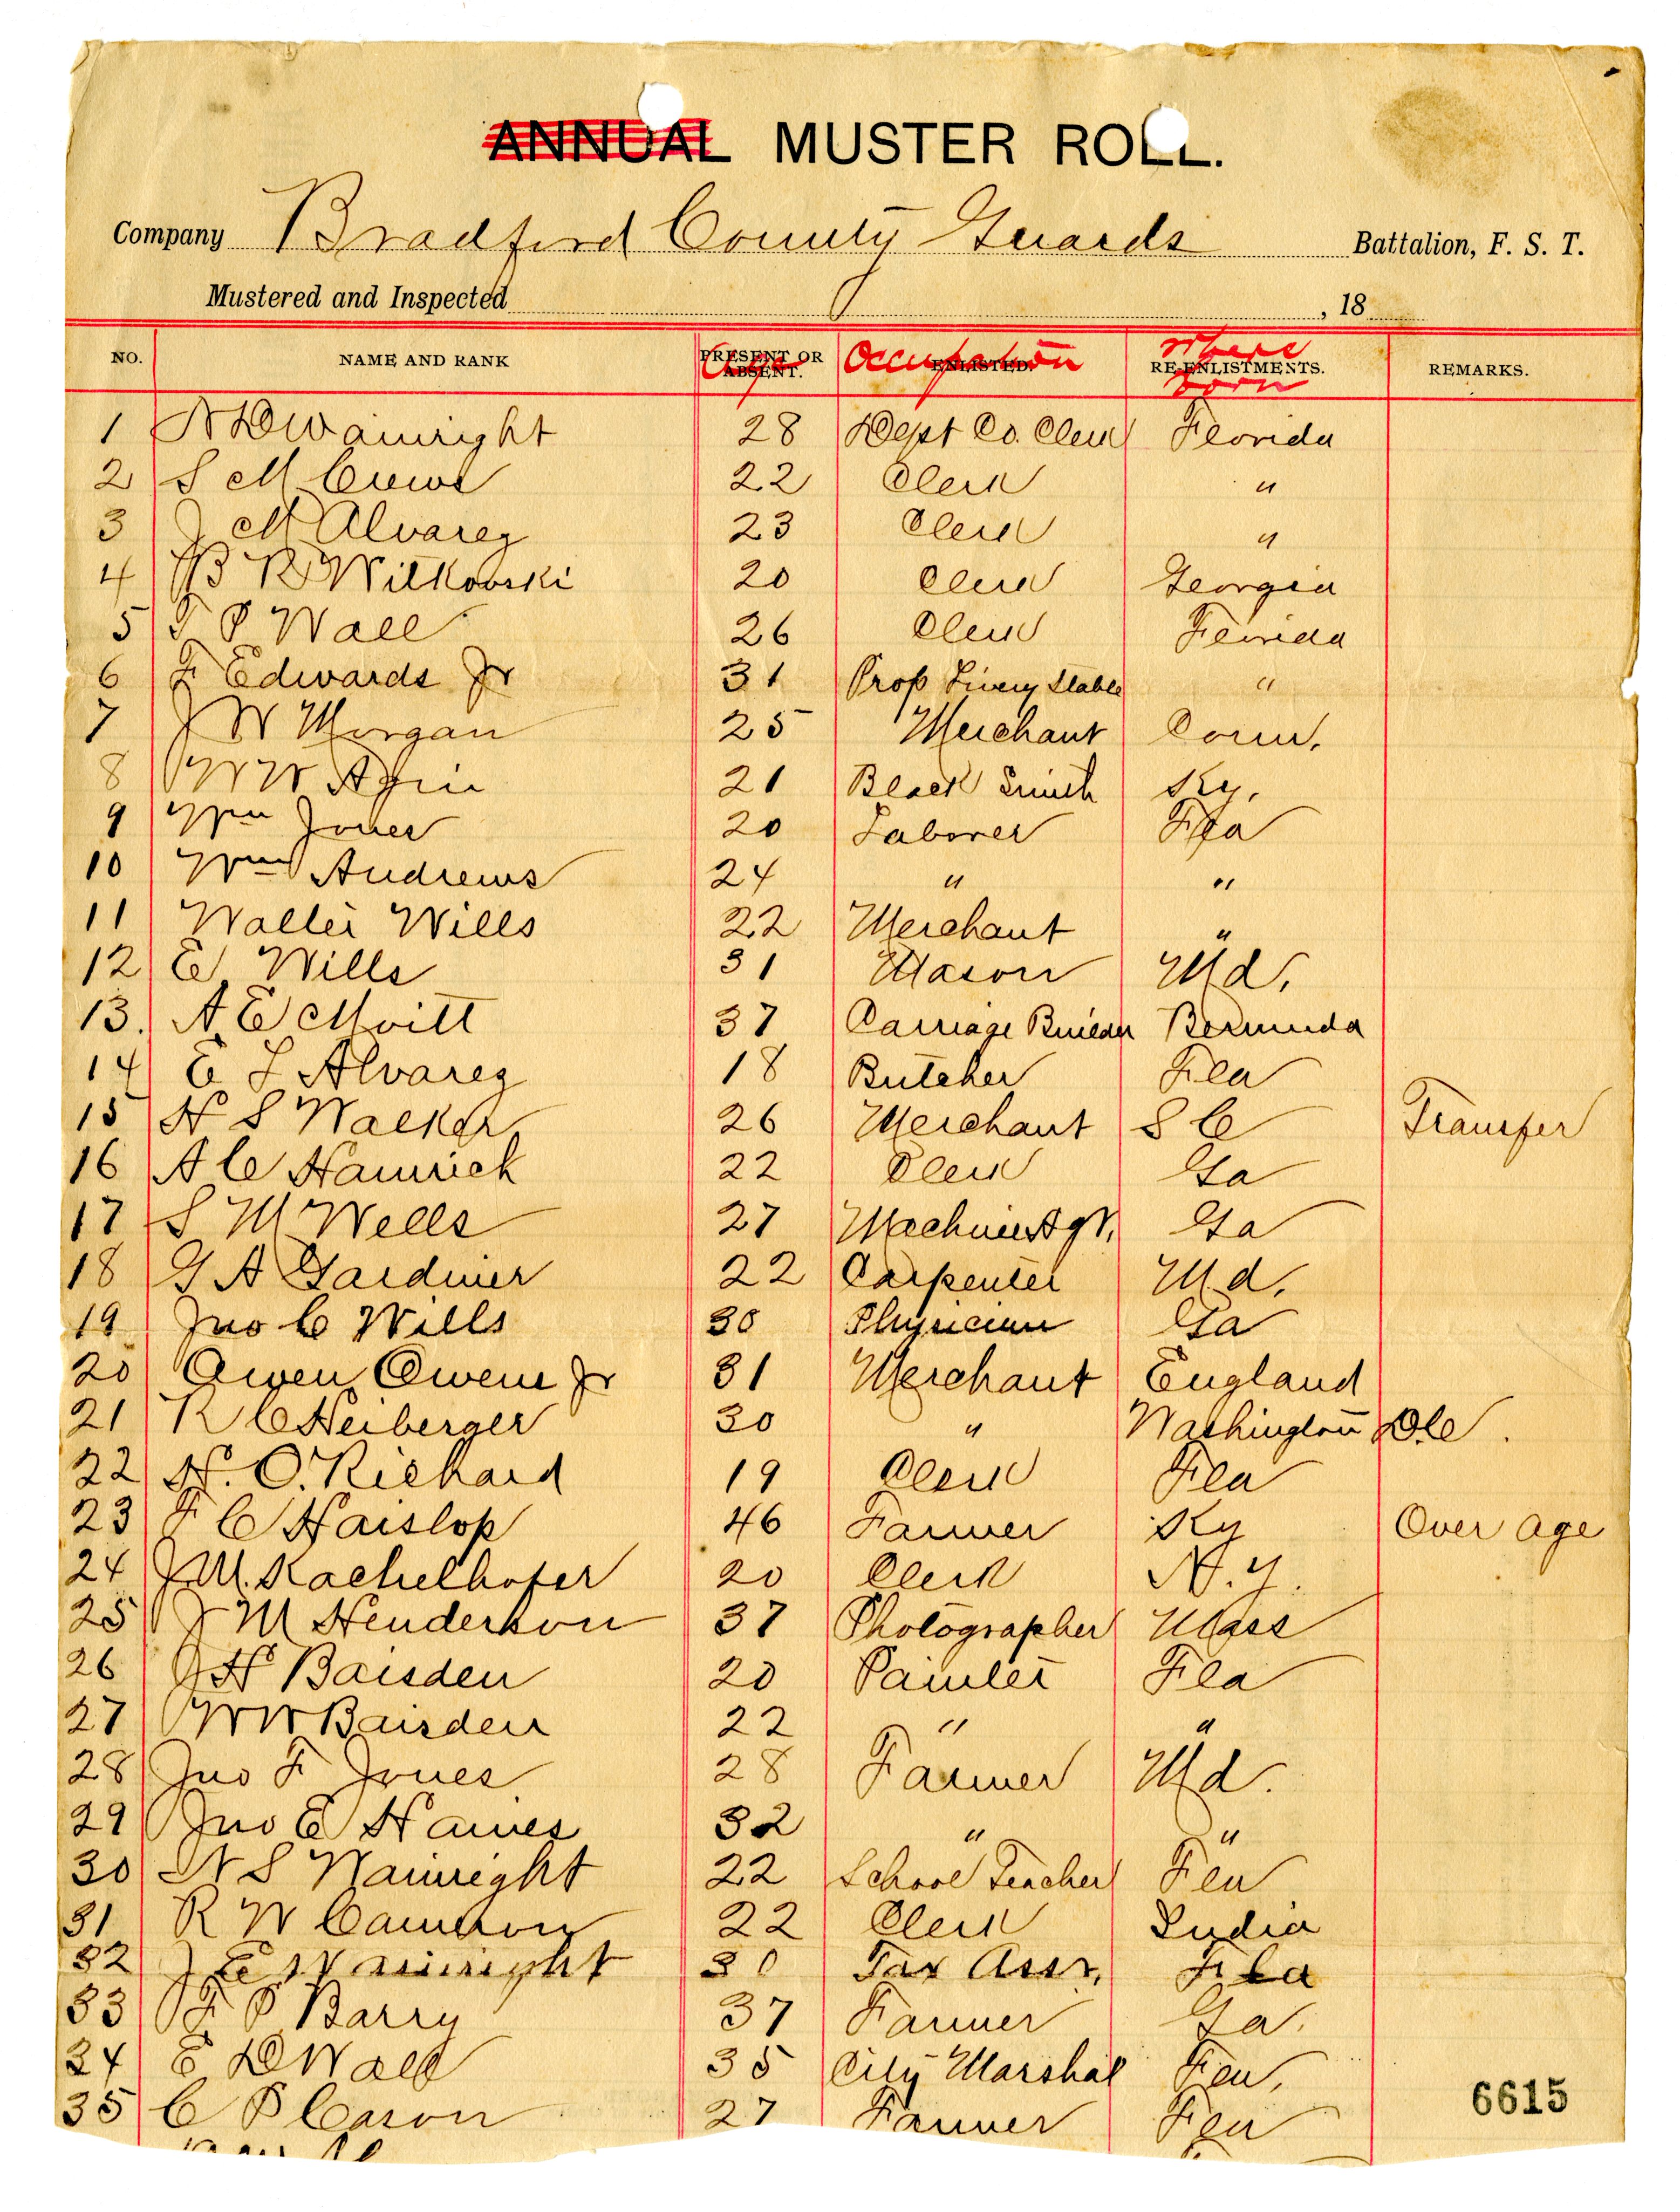 ANNUAL MUSTER ROLL.
Company Bradford County Guards Battalion, F. S. T.
Mustered and Inspected , 18
NO. NAME AND RANK PRESENT OR ABSENT. Age ENLISTED. Occupation RE-ENLISTMENTS. Where born REMARKS.
1 Wainright 28 Dept Co. Clerk Florida
2 S M Crews 22 Clerk "
3 J M Alvarez 23 Clerk "
4 B R Witkovski 20 Clerk Georgia
5 T P Wall 26 Clerk Florida
6 F Edwards Jr 31 Prop Livery Stable "
7 J W Morgan 25 Merchant Conn.
8 W W 21 Black Smith Ky.
9 Wm Jones 20 Laborer Fla
10 Wm Andrews 24 " "
11 Walter Wills 22 Merchant "
12 E Wills 31 Mason Md.
13. A E 37 Carriage Builder Bermuda
14 E L Alvarez 18 Butcher Fla
15 N S Walker 26 Merchant S C Transfer
16 A C Hamrick 22 Clerk Ga
17 S M Wells 27 Ga
18 G A Gardiner 22 Carpenter Md.
19 Jno C Wills 30 Physician Ga
20 Owen Owens Jr 31 Merchant England
21 R C Heiberger 30 " Washington DC.
22 N. O. Richard 19 Clerk Fla
23 F C Haislop 46 Farmer Ky Over age
24 J M. Kachelhofer 20 Clerk N. Y.
25 J M Henderson 37 Photographer Mass
26 J H Baisden 20 Painter Fla
27 W W Baisden 22 " "
28 Jno F Jones 28 Farmer Md.
29 Jno E Haines 32 " "
30 N S Wainright 22 School Teacher Fla
31 R W Cameron 22 Clerk India
32 J E Wainright 30 Tax Assr. Fla
33 F P Barry 37 Farmer Ga.
34 E D Wall 35 City Marshal Fla.
35 C P Cason 27 Farmer Fla
6615